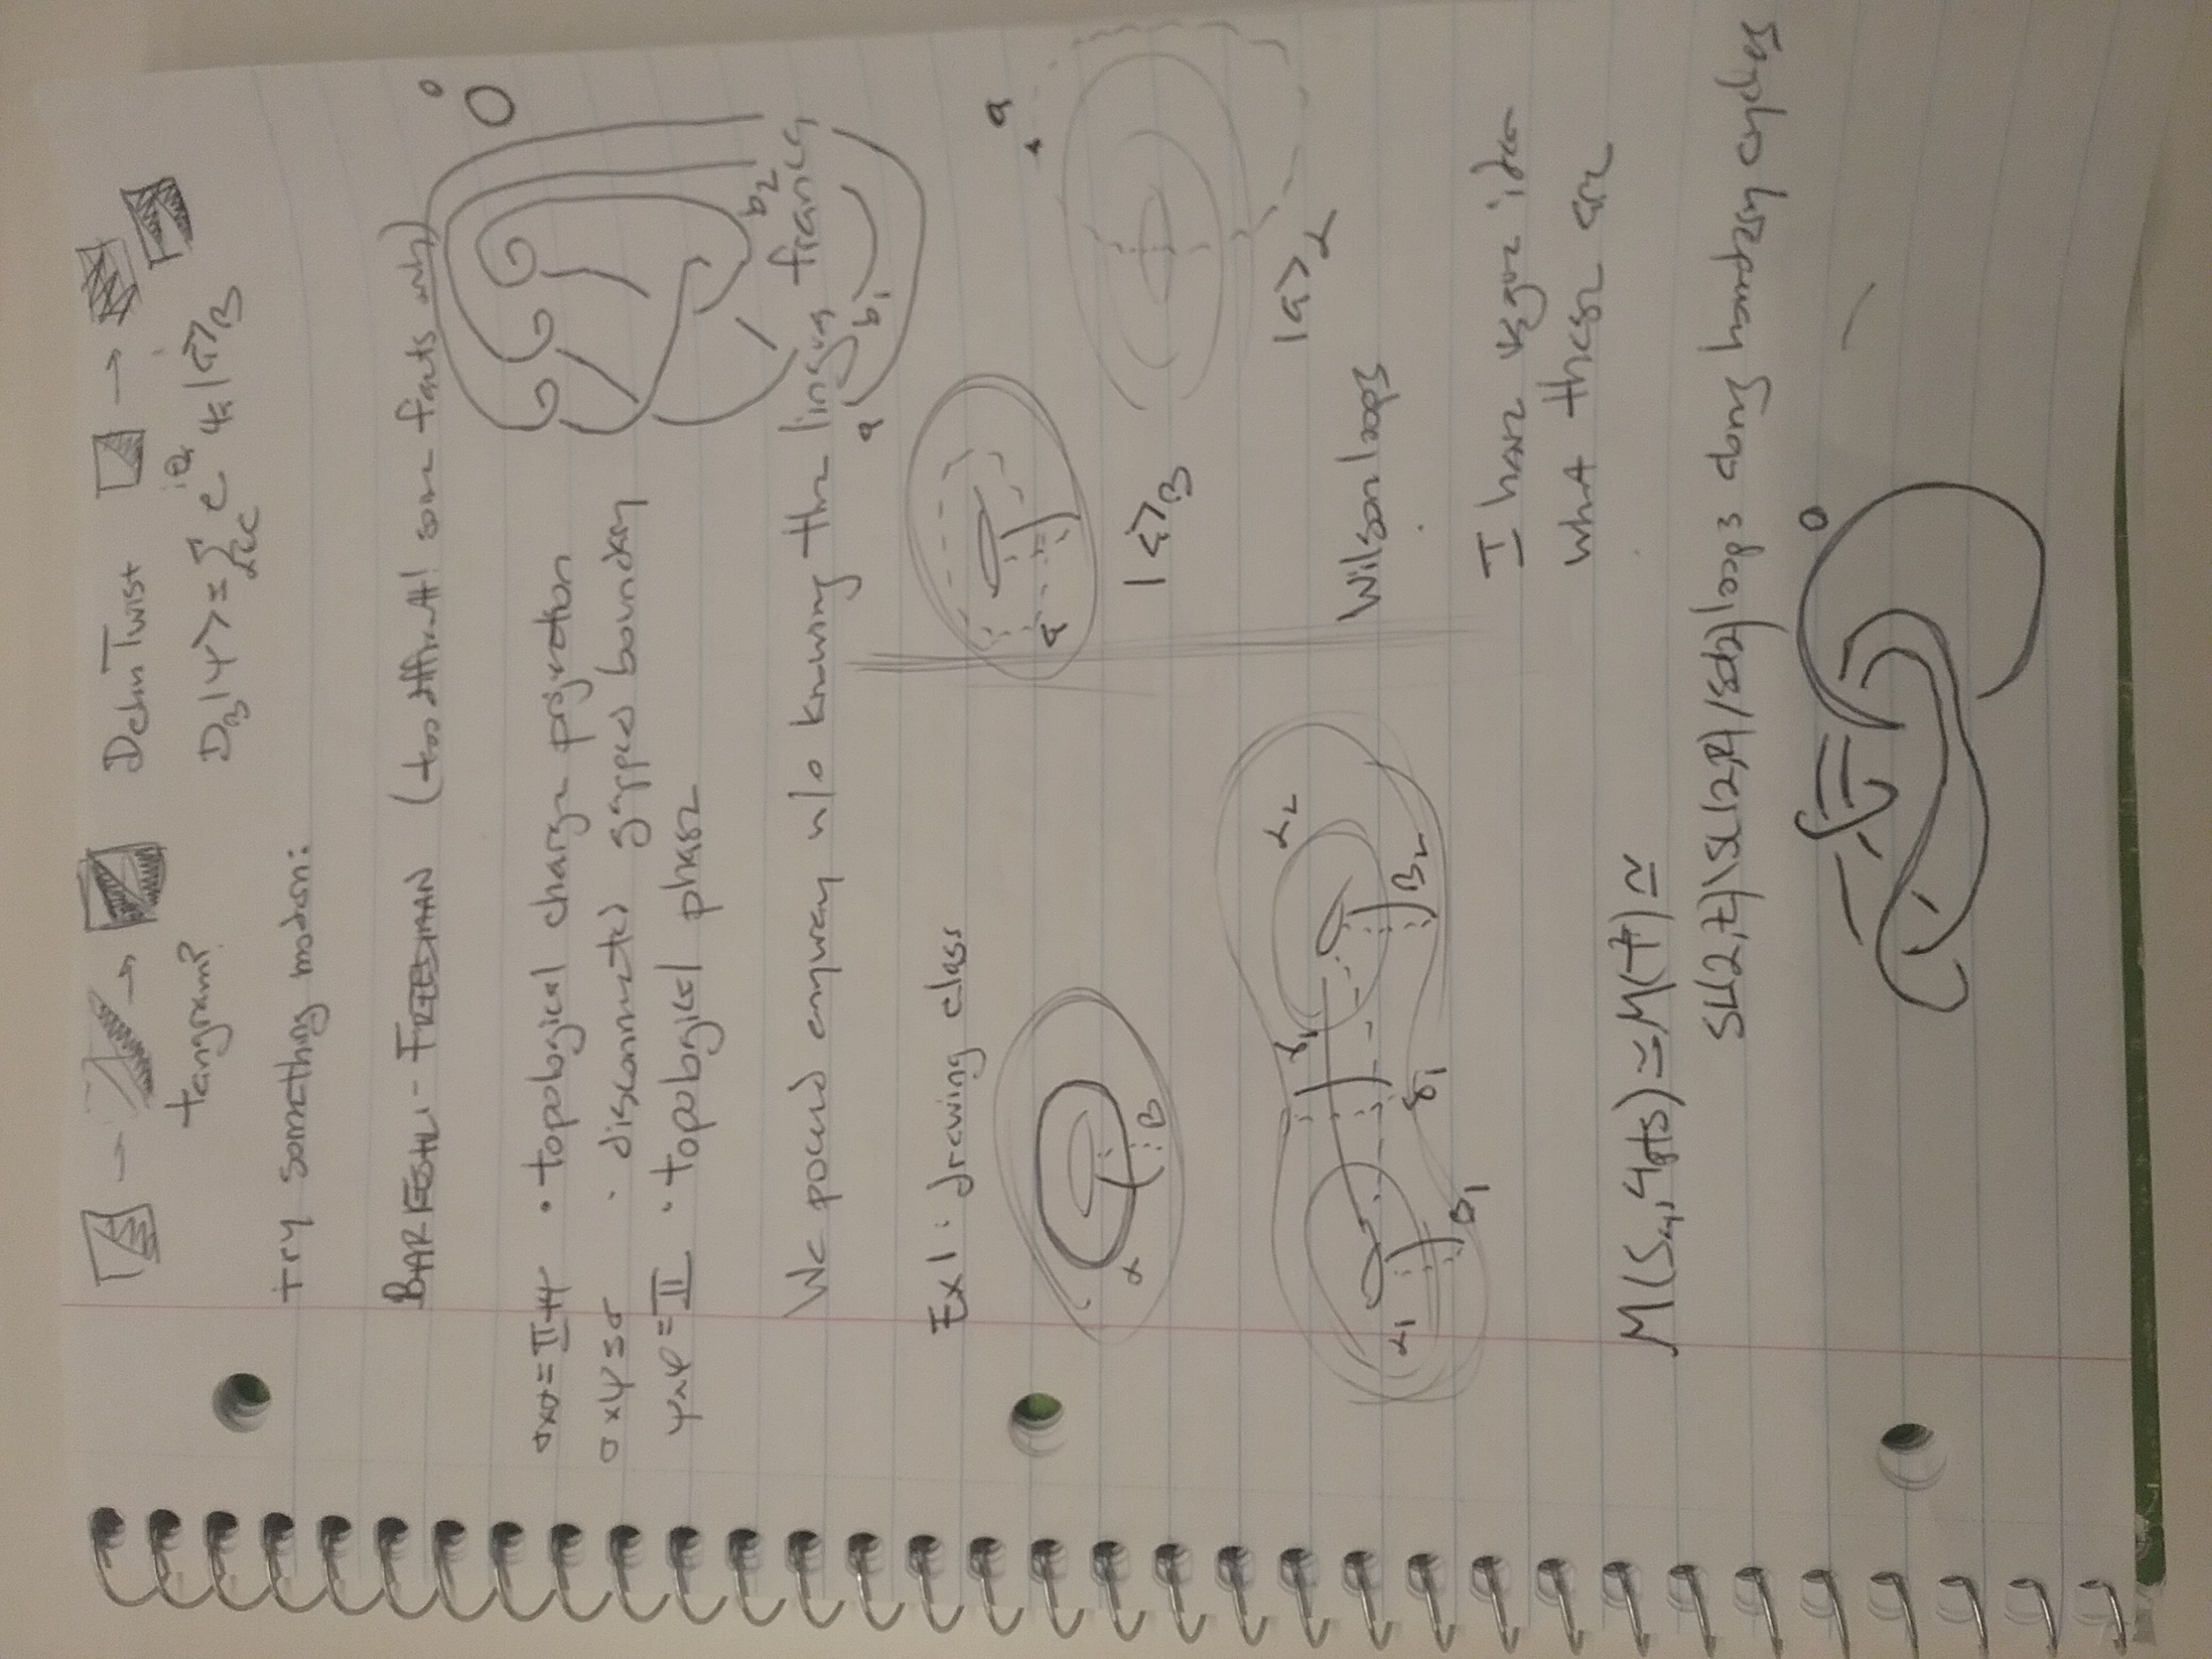 Dehn Twist
tangram?
D_B|ψ> = Σ_{a∈C} e^{iθ_a} ψ_a |a>_B
try something modern:
BARKESHLI - FREEDMAN (too difficult! some facts only)
σ×σ = 𝕀+ψ • topological charge projection
σ×ψ = σ • disconnected gapped boundary
ψ×ψ = 𝕀 • topological phase
b₂
We proceed anyway w/o knowing the lingua franca
a b₁
Ex 1: drawing class
a
α β
a
|a>_β
|a>_α
γ₁ α₂
Wilson loops
α₁ δ₁ β₂
β₁
I have vague idea
what these are
M(S, 4pts) ≃ M(T²) ≃
SL(2,Z)\SL(2,R)/SO(2) loops along boundary cycles